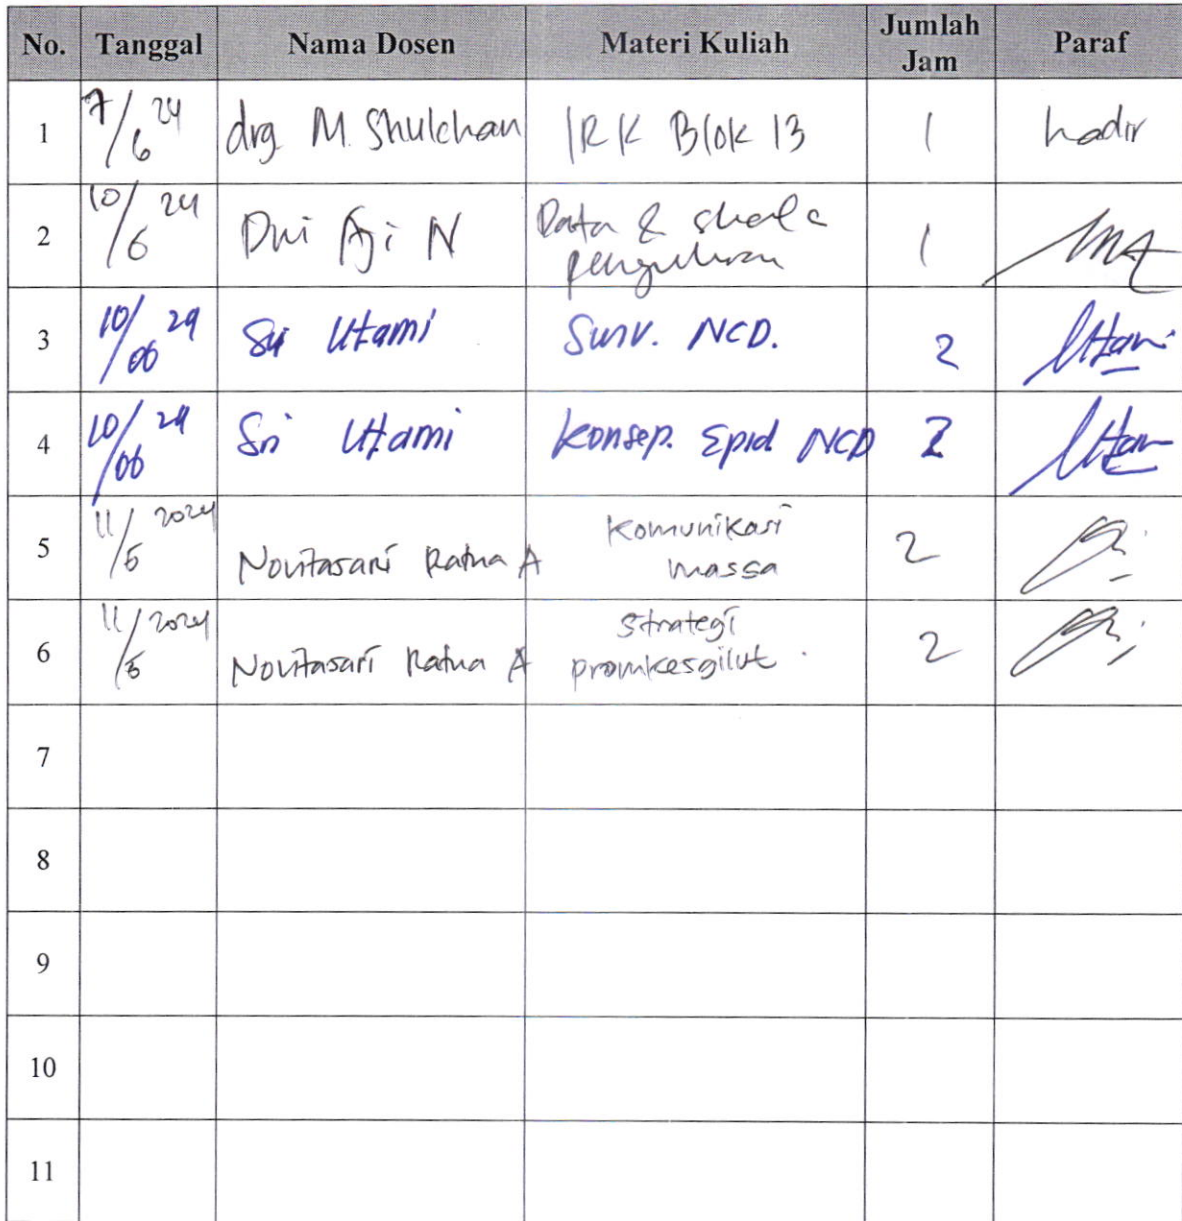 No. Tanggal Nama Dosen Materi Kuliah Jumlah Jam Paraf
1 7/6 24 drg. M. Shulchan IRK Blok 13 1 hadir
2 10/6 24 Dwi Aji N Data & skala pengukuran 1
3 10/06 24 Sri Utami Surv. NCD. 2 Utami
4 10/06 24 Sri Utami Konsep. Epid NCD 2 Utami
5 11/6 2024 Novitasari Ratna A Komunikasi massa 2
6 11/6 2024 Novitasari Ratna A Strategi promkesgilut. 2
7
8
9
10
11